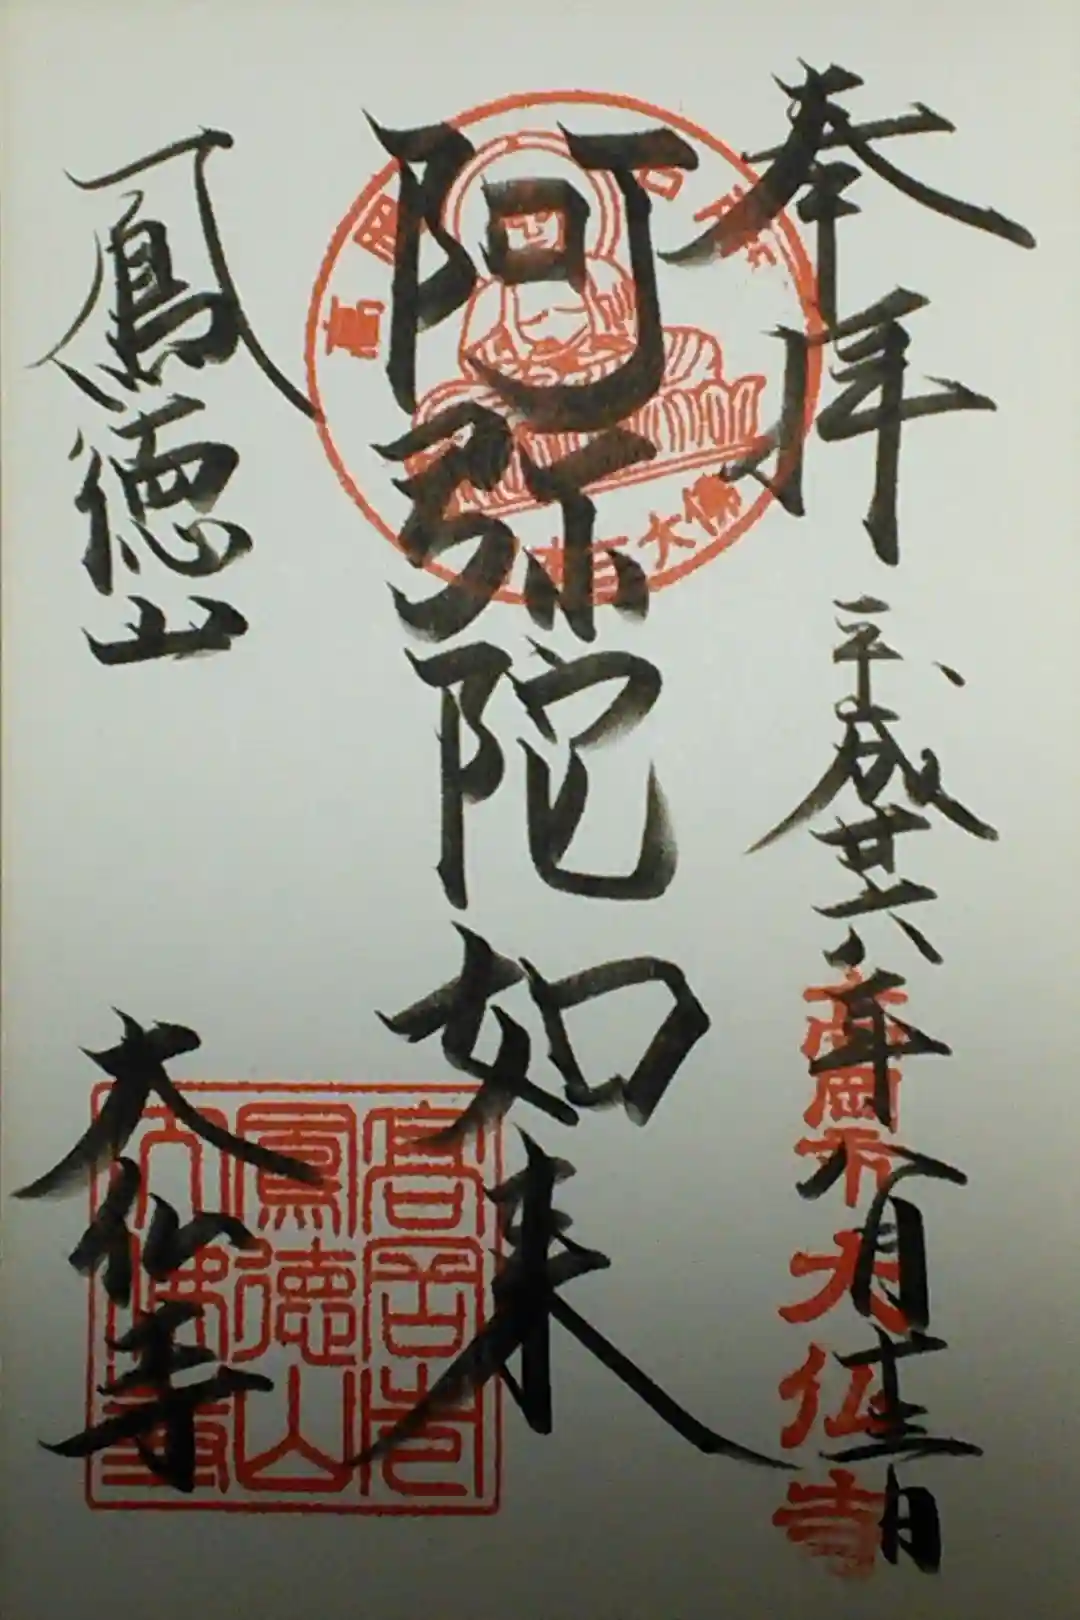 奉拝
平成廿六年八月十三日
高岡市
大仏寺
阿弥陀如来
高岡
大佛
鳳徳山
大仏寺
高岡市
鳳徳山
大佛寺